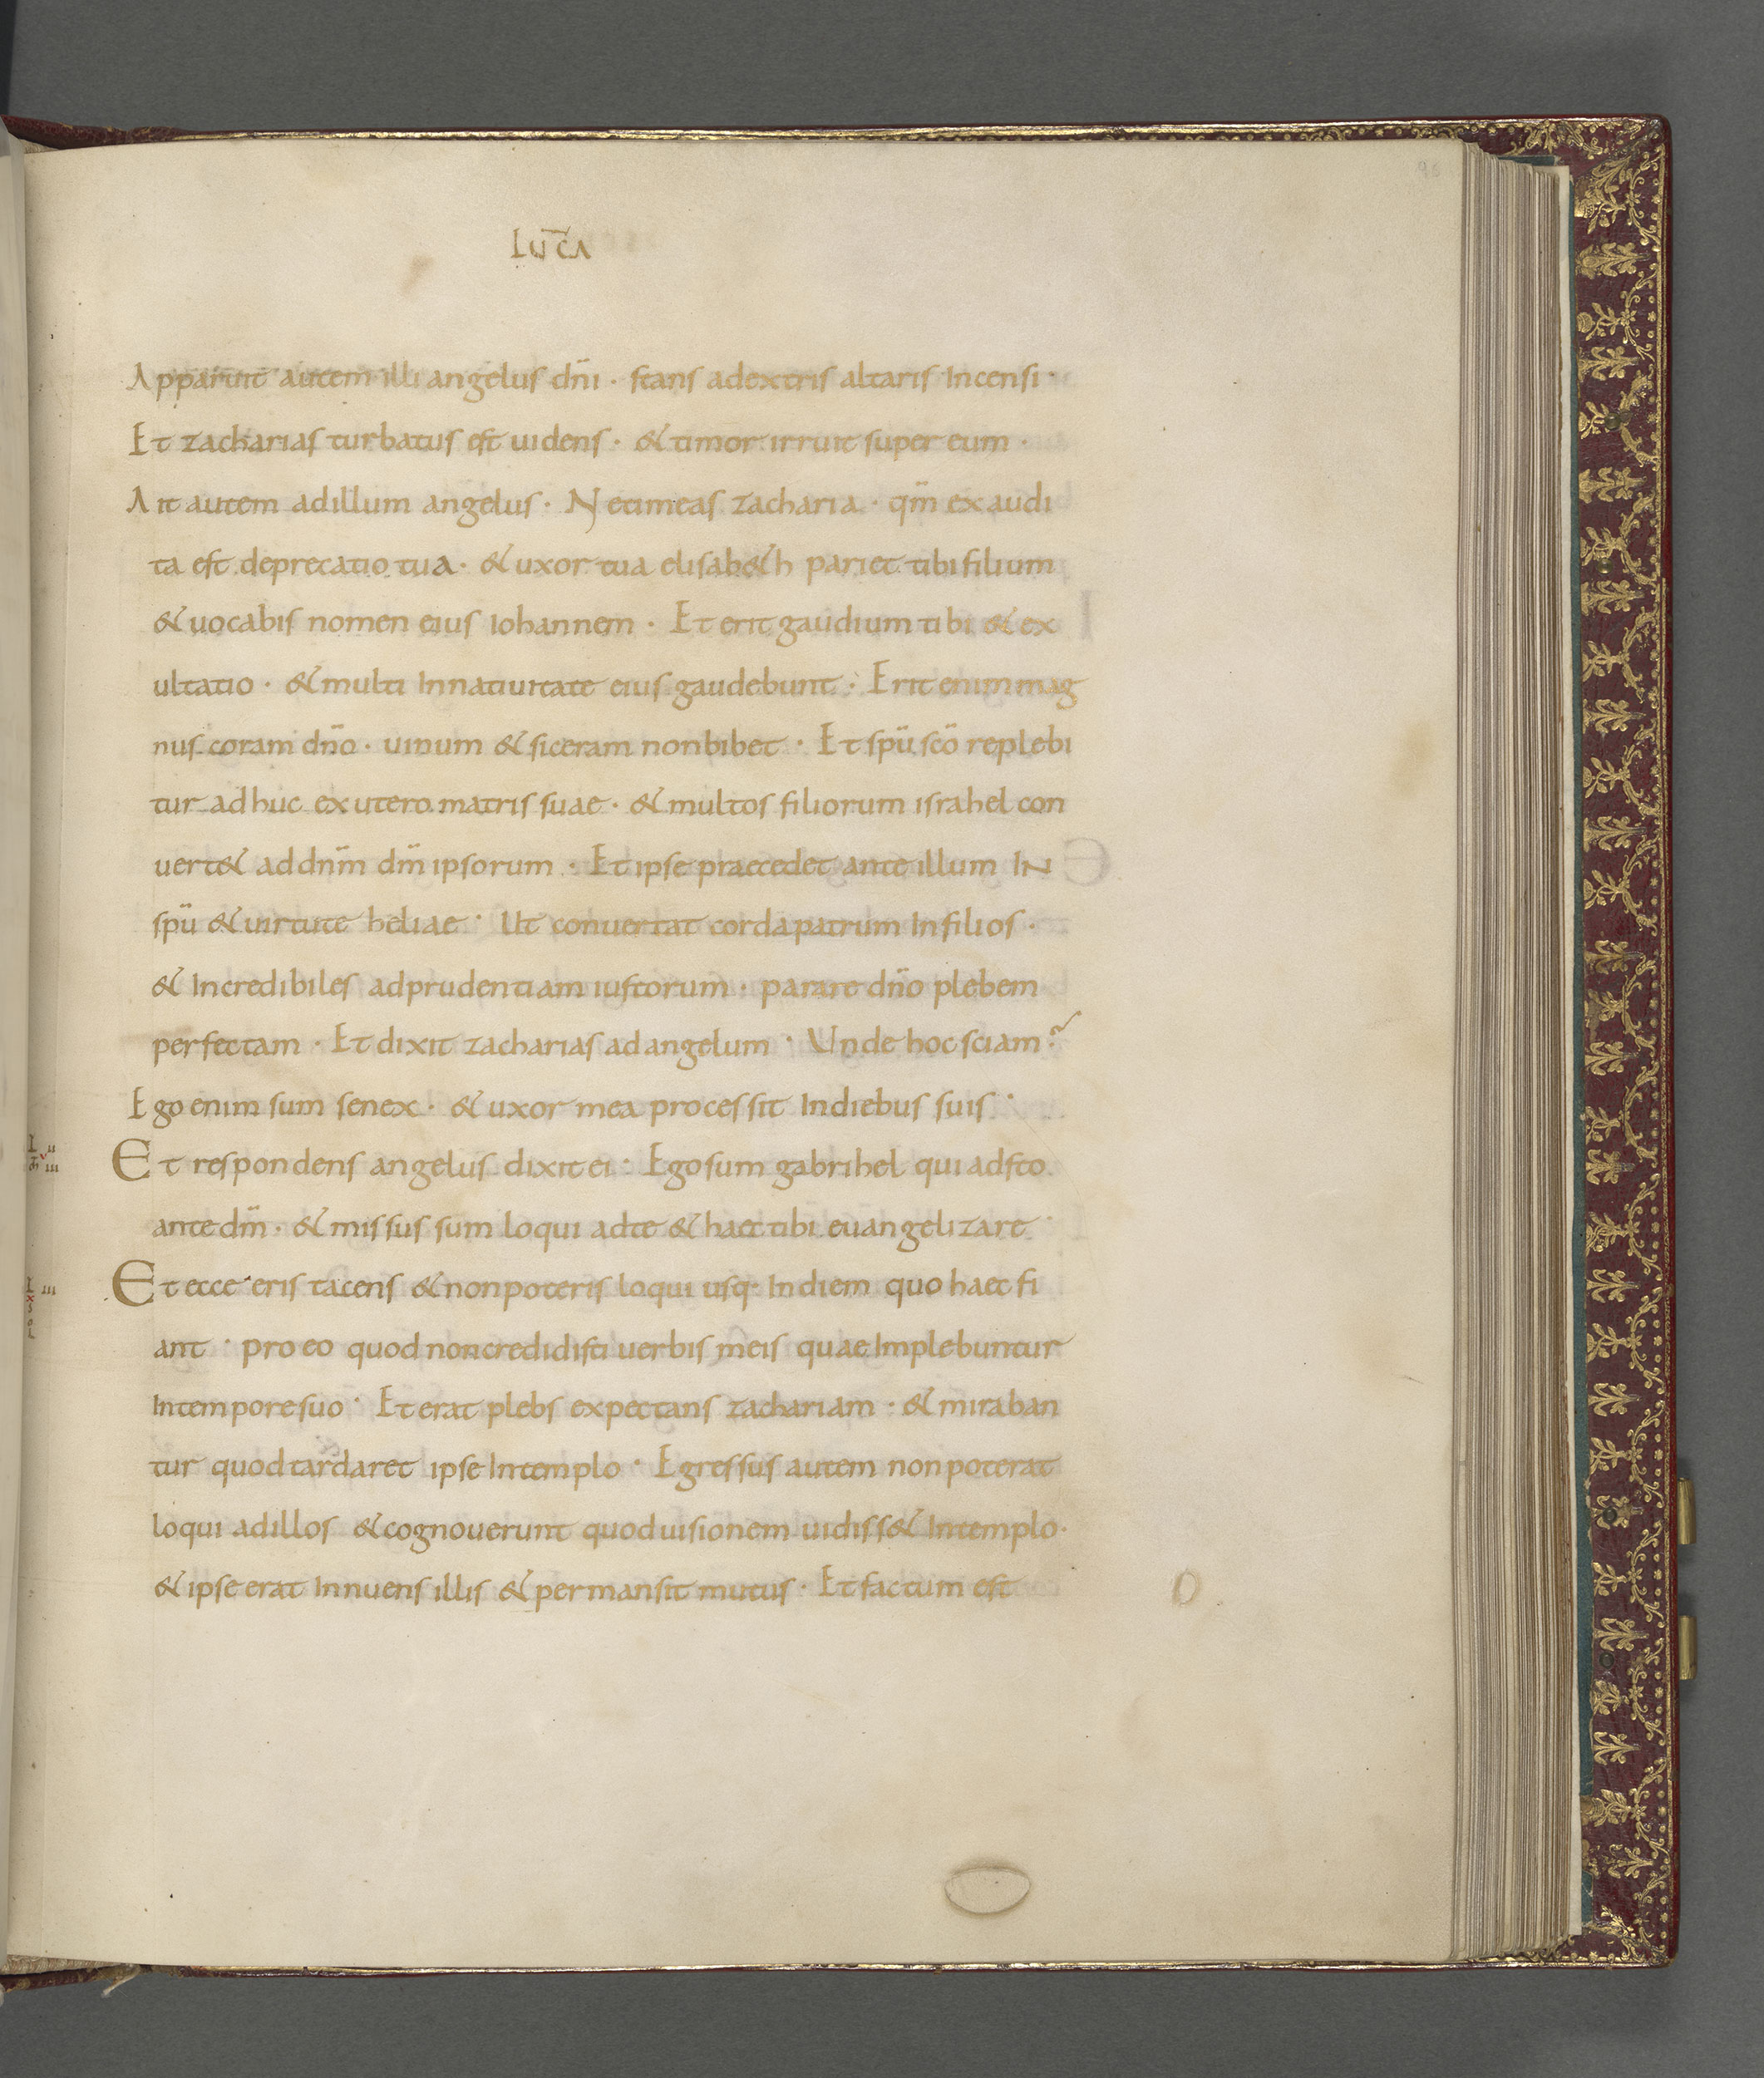 LUCA
Apparuit autem illi angelus dn̄i · stans adextris altaris Incensi ·
Et zacharias turbatus est uidens · & timor irruit super eum ·
Ait autem adillum angelus · Netimeas zacharia · qm̄ exaudi
ta est deprecatio tua · & uxor tua elisab&h pariet tibi filium
& uocabis nomen eius iohannem · Et erit gaudium tibi & ex
ultatio · & multi Innatiuitate eius gaudebunt · Erit enim mag
nus coram dn̄o · uinum & siceram nonbibet · Et spū scō replebi
tur adhuc exutero matris suae · & multos filiorum israhel con
uert& addnm̄ dm̄ ipsorum · Et ipse praecedet ante illum IN
spū & uirtute heliae · Ut conuertat corda patrum Infilios ·
& Incredibiles adprudentiam iustorum · parare dn̄o plebem
perfectam · Et dixit zacharias adangelum · Unde hoc sciam?
Ego enim sum senex · & uxor mea processit Indiebus suis ·
Et respondens angelus dixit ei · Ego sum gabrihel qui adsto
ante dm̄ · & missus sum loqui adte & haec tibi euangelizare ·
Et ecce eris tacens & nonpoteris loqui usq· Indiem quo haec fi
ant · pro eo quod noncredidisti uerbis meis quae Implebuntur
Intempore suo · Et erat plebs expectans zachariam · & miraban
tur quod tardaret ipse Intemplo · Egressus autem nonpoterat
loqui adillos & cognouerunt quod uisionem uidiss& Intemplo ·
& ipse erat Innuens illis & permansit mutus · Et factum est